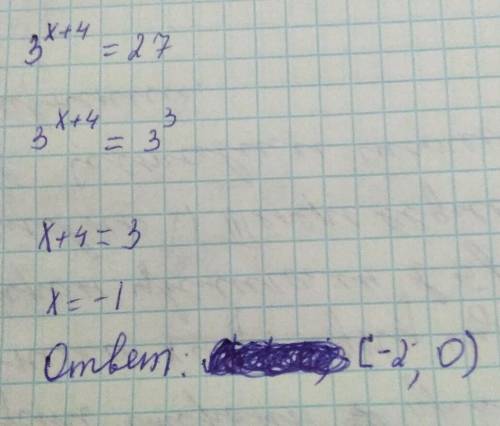 3^{x+4} = 27
3^{x+4} = 3^3
x+4 = 3
x = -1
Ответ: [-2; 0)